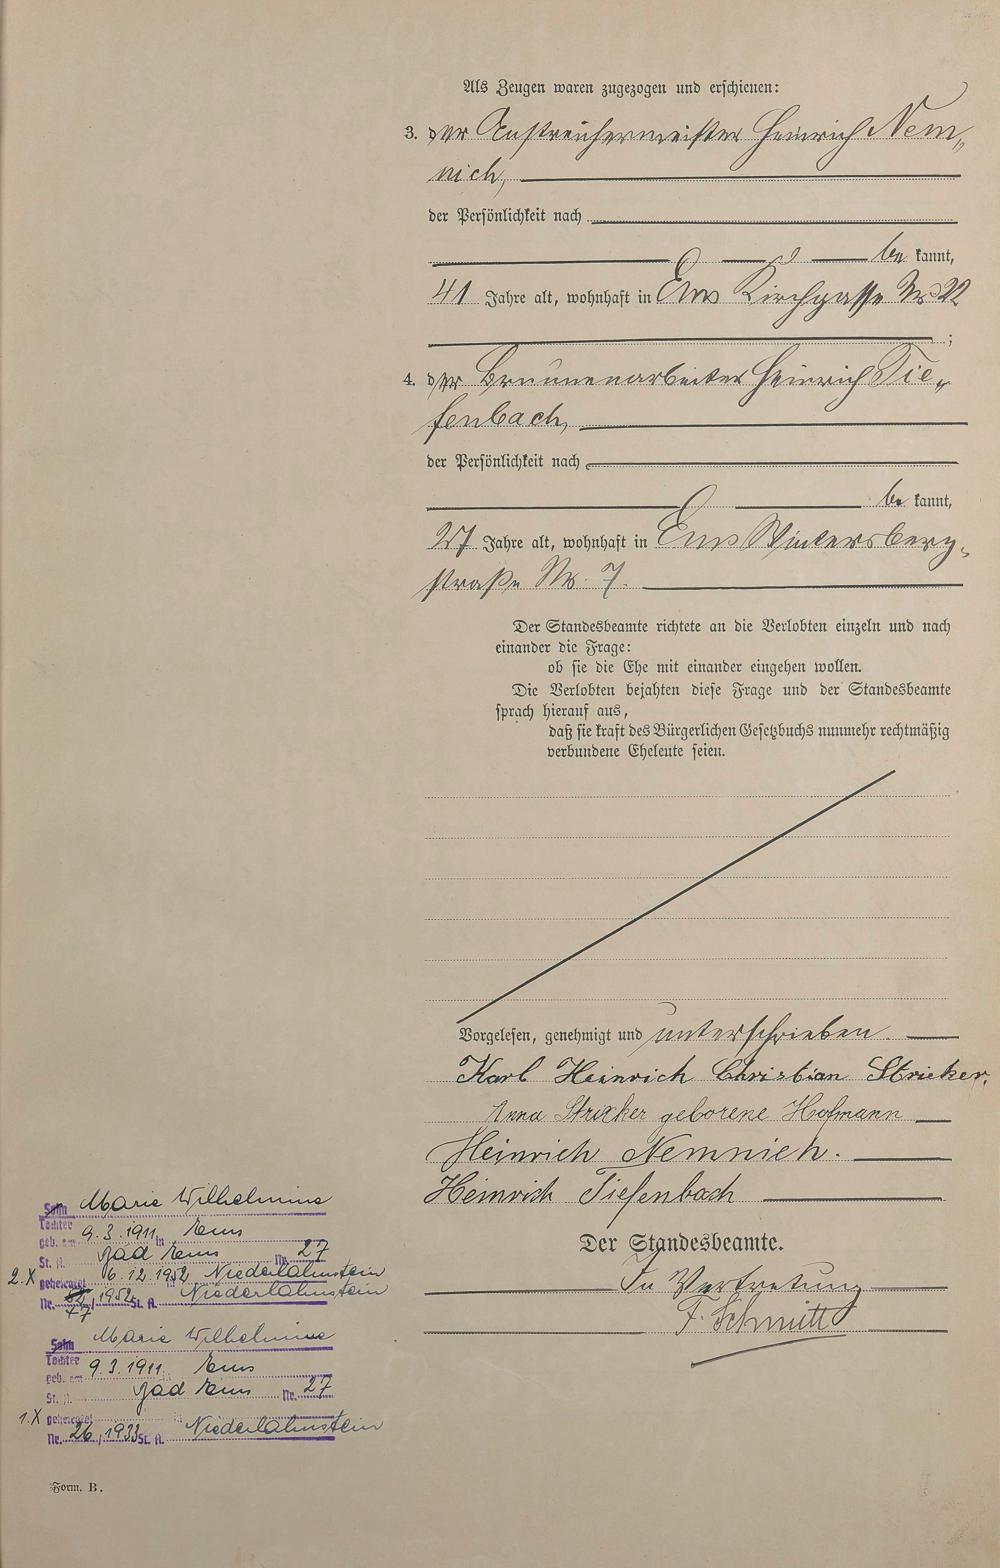 Als Zeugen waren zugezogen und erschienen:
3. der Anstreichermeister Heinrich Nem„
nich,
der Persönlichkeit nach
be kannt,
41 Jahre alt, wohnhaft in Ems Kirchgasse Nr 22
;
4. der Brunnenarbeiter Heinrich Tie„
fenbach,
der Persönlichkeit nach
be kannt,
27 Jahre alt, wohnhaft in Ems Wintersberg„
straße Nr. 7.
Der Standesbeamte richtete an die Verlobten einzeln und nach
einander die Frage:
ob sie die Ehe mit einander eingehen wollen.
Die Verlobten bejahten diese Frage und der Standesbeamte
sprach hierauf aus,
daß sie kraft des Bürgerlichen Gesetzbuchs nunmehr rechtmäßig
verbundene Eheleute seien.
Vorgelesen, genehmigt und unterschrieben.
Karl Heinrich Christian Stricker.
Anna Stricker geborene Hofmann
Heinrich Nemnich.
Heinrich Tiefenbach
Der Standesbeamte.
In Vertretung
F. Schmitt
Sohn Marie Wilhelmine
Tochter
geb. am 9.3.1911 in Ems
St. A. Bad Ems Nr. 27
2.X geheiratet 6.12.1952 Niederlahnstein
Nr. 77/1952 St. A. Niederlahnstein
Sohn Marie Wilhelmine
Tochter
geb. am 9.3.1911 Ems
St. A. Bad Ems Nr. 27
1.X geheiratet
Nr. 26/1933 St. A. Niederlahnstein
Form. B.